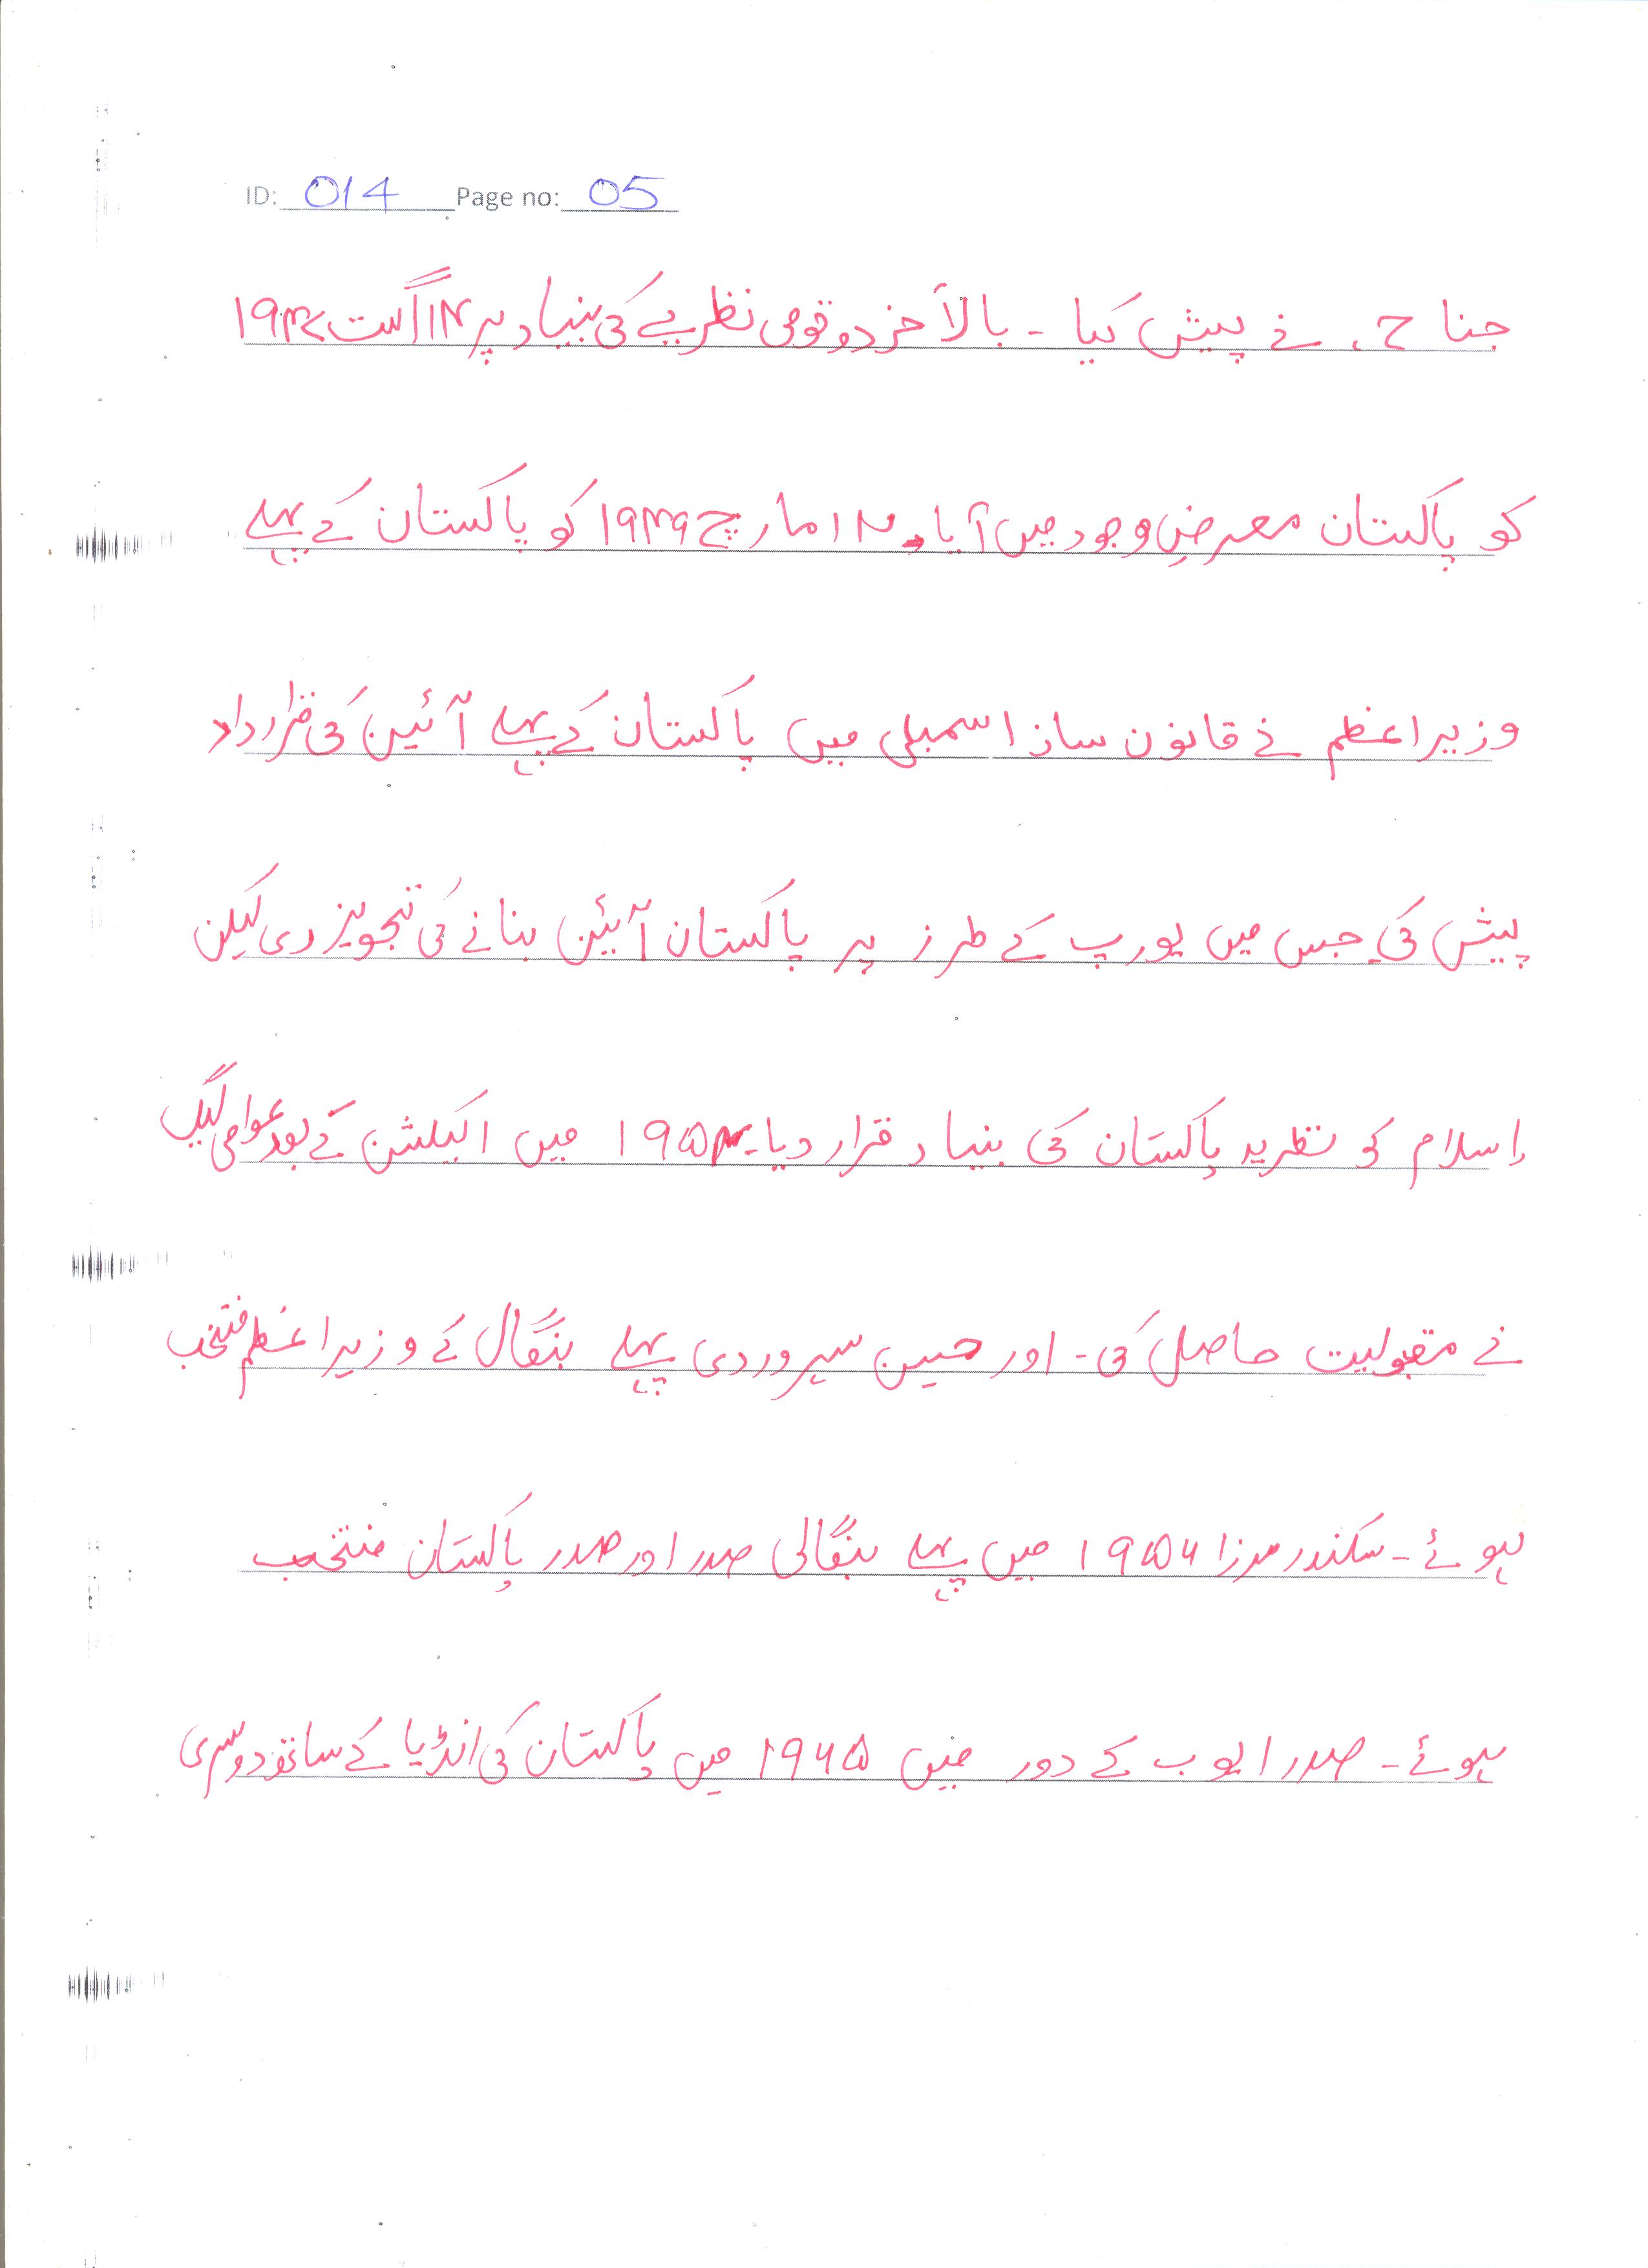 ID: 014 Page no: 05
جناح نے پیش کیا۔ بالآخر دو قومی نظریے کی بنیاد پر ۱۴ اگست ۱۹۴۷
کو پاکستان معرضِ وجود میں آیا۔ ۱۲ مارچ ۱۹۴۹ کو پاکستان کے پہلے
وزیراعظم نے قانون ساز اسمبلی میں پاکستان کے پہلے آئین کی قرارداد
پیش کی۔ جس میں یورپ کے طرز پر پاکستان آئین بنانے کی تجویز دی لیکن
اِسلام کو نظریہ پاکستان کی بنیاد قرار دیا۔ ۱۹۵۴ میں الیکشن کے بعد عوامی لیگ
نے مقبولیت حاصل کی۔ اور حسین سہروردی پہلے بنگال کے وزیراعظم منتخب
ہوئے۔ سکندر مرزا ۱۹۵۶ میں پہلے بنگالی صدر اور صدر پاکستان منتخب
ہوئے۔ صدر ایوب کے دور میں ۱۹۶۵ میں پاکستان کی انڈیا کے ساتھ دوسری